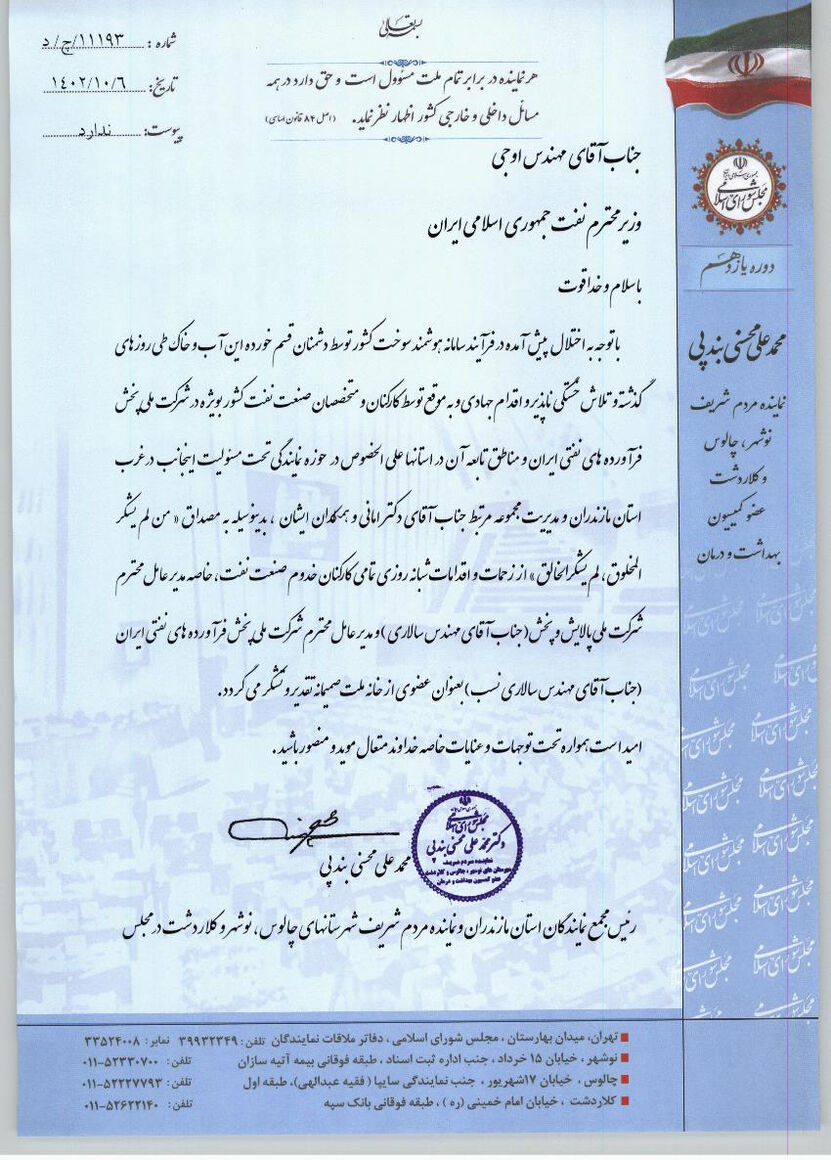 بسمه تعالی
شماره : ۱۱۱۹۳/ج/د
تاریخ: ۱۴۰۲/۱۰/۶
پیوست: ندارد
هر نماینده در برابر تمام ملت مسؤول است و حق دارد در همه
مسائل داخلی و خارجی کشور اظهار نظر نماید. (اصل ۸۴ قانون اساسی)
جمهوری اسلامی ایران
مجلس شورای اسلامی
دوره یازدهم
محمدعلی محسنی بندپی
نماینده مردم شریف
نوشهر، چالوس
و کلاردشت
عضو کمیسیون
بهداشت و درمان
جناب آقای مهندس اوجی
وزیر محترم نفت جمهوری اسلامی ایران
با سلام و خدا قوت
با توجه به اختلال پیش آمده در فرآیند سامانه هوشمند سوخت کشور توسط دشمنان قسم خورده این آب و خاک طی روزهای
گذشته و تلاش خستگی ناپذیر و اقدام جهادی و به موقع توسط کارکنان و متخصصان صنعت نفت کشور بویژه در شرکت ملی پخش
فرآورده های نفتی ایران و مناطق تابعه آن در استانها علی الخصوص در حوزه نمایندگی تحت مسئولیت اینجانب در غرب
استان مازندران و مدیریت مجموعه مرتبط جناب آقای دکتر امانی و همکاران ایشان ، بدینوسیله به مصداق « من لم یشکر
المخلوق ، لم یشکر الخالق » از زحمات و اقدامات شبانه روزی تمامی کارکنان خدوم صنعت نفت، خاصه مدیر عامل محترم
شرکت ملی پالایش و پخش (جناب آقای مهندس سالاری) و مدیر عامل محترم شرکت ملی پخش فرآورده های نفتی ایران
(جناب آقای مهندس سالاری نسب) بعنوان عضوی از خانه ملت صمیمانه تقدیر و تشکر می گردد.
امید است همواره تحت توجهات و عنایات خاصه خداوند متعال موید و منصور باشید.
مجلس شورای اسلامی
دکتر محمد علی محسنی بندپی
نماینده مردم شریف
شهرستان های نوشهر ، چالوس و کلاردشت
عضو کمیسیون بهداشت و درمان
محمد علی محسنی بندپی
رئیس مجمع نمایندگان استان مازندران و نماینده مردم شریف شهرستانهای چالوس، نوشهر و کلاردشت در مجلس
تهران، میدان بهارستان ، مجلس شورای اسلامی ، دفاتر ملاقات نمایندگان تلفن: ۳۹۹۳۲۳۴۹ نمابر: ۳۳۵۲۴۰۰۸
نوشهر ، خیابان ۱۵ خرداد ، جنب اداره ثبت اسناد ، طبقه فوقانی بیمه آتیه سازان تلفن: ۰۱۱-۵۲۳۳۰۷۰۰
چالوس ، خیابان ۱۷شهریور ، جنب نمایندگی سایپا ( فقیه عبدالهی)، طبقه اول تلفن: ۰۱۱-۵۲۲۲۷۷۹۳
کلاردشت ، خیابان امام خمینی (ره ) ، طبقه فوقانی بانک سپه تلفن: ۰۱۱-۵۲۶۲۲۱۴۰